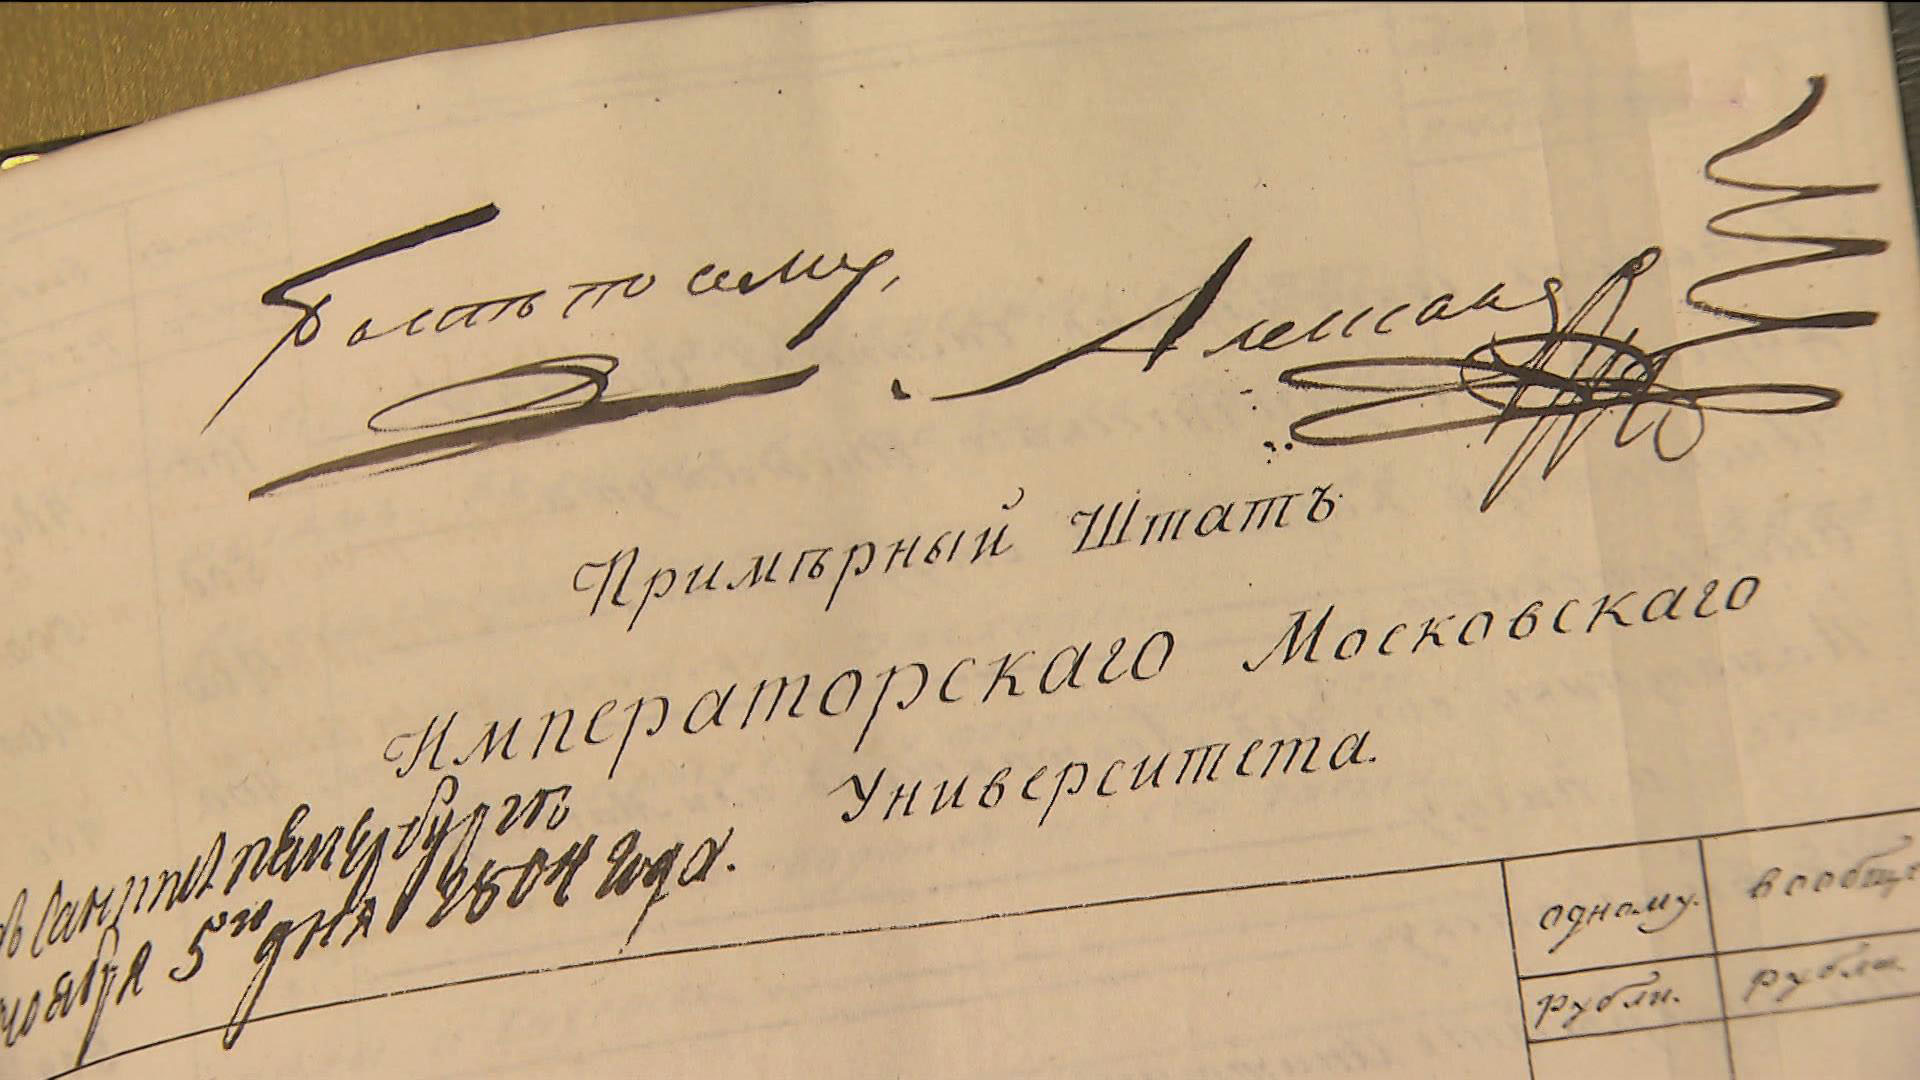 Быть по сему,
Александръ
Примѣрный Штатъ
Императорскаго Московскаго
Университета.
въ Санктпетербургѣ
ноября 5го дня 1804 года.
одному. вообще
рубли. рубли.